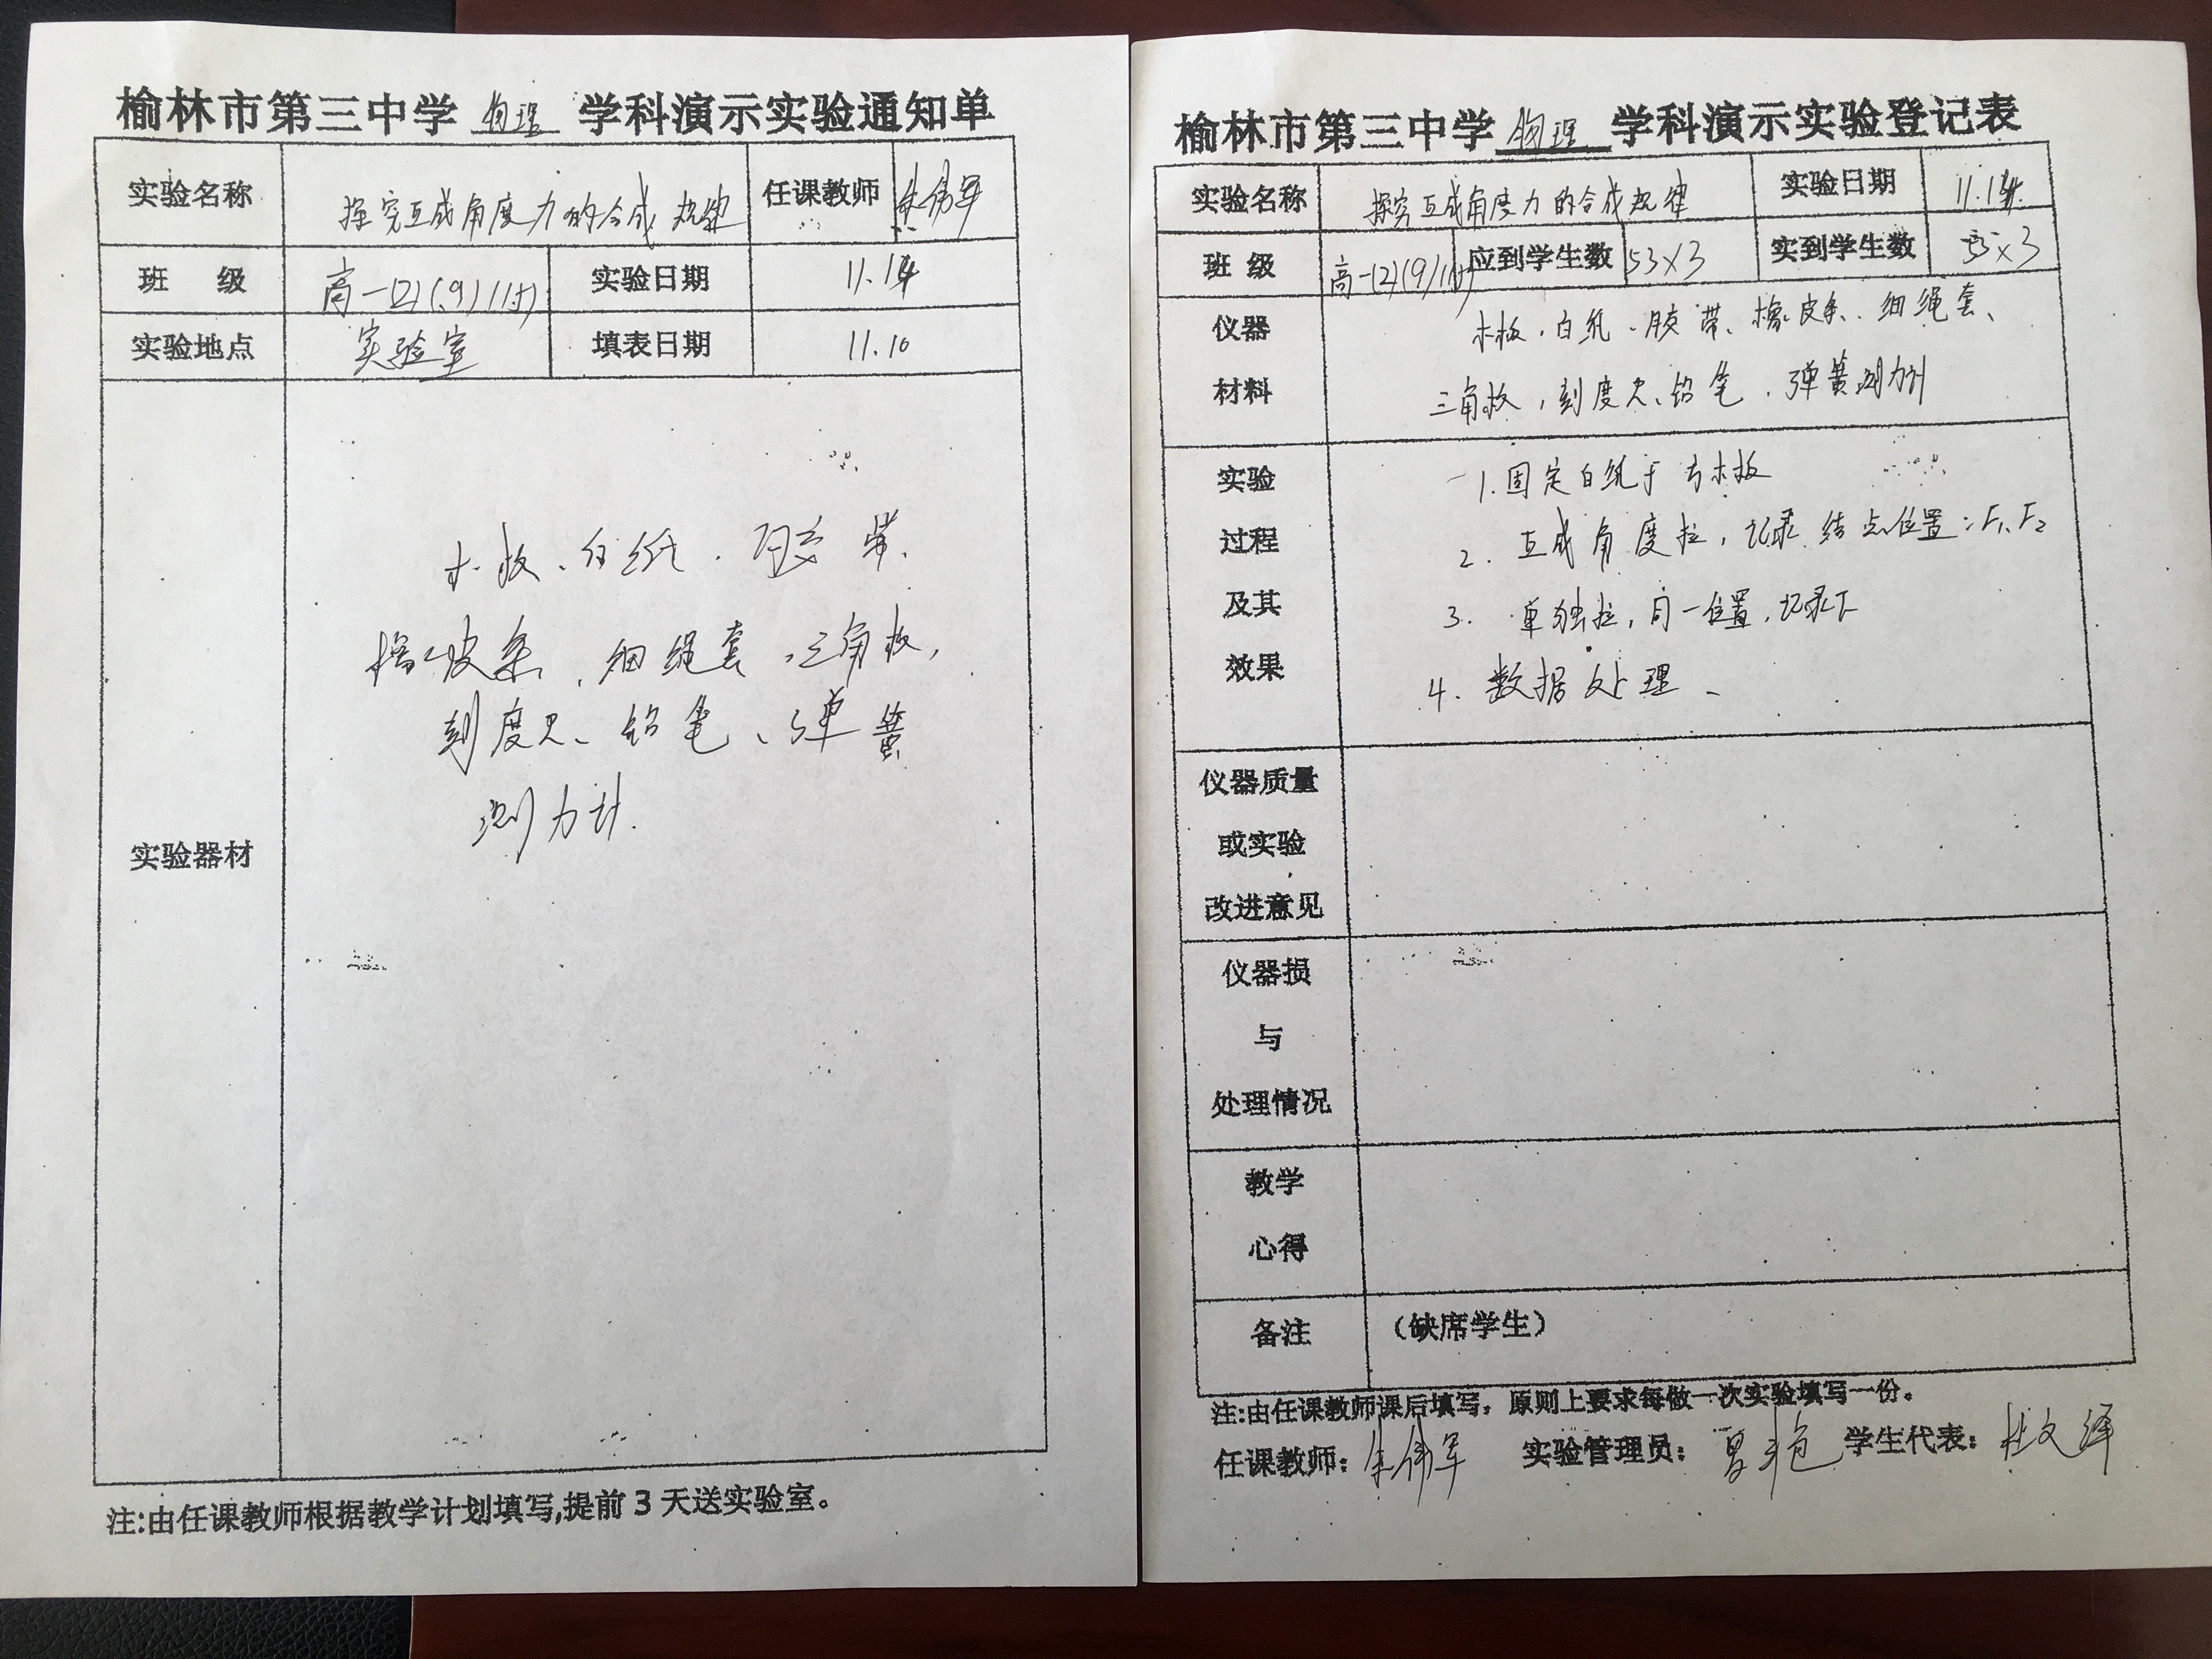 榆林市第三中学 物理 学科演示实验通知单
实验名称 探究互成角度力的合成规律 任课教师 朱伟军
班 级 高一(2)(9)(10) 实验日期 11.14
实验地点 实验室 填表日期 11.10
实验器材
木板、白纸、胶带、
橡皮条、细绳套、三角板,
刻度尺、铅笔、弹簧
测力计.
注:由任课教师根据教学计划填写,提前3天送实验室。
榆林市第三中学 物理 学科演示实验登记表
实验名称 探究互成角度力的合成规律 实验日期 11.14.
班 级 高一(2)(9)(10) 应到学生数 53×3 实到学生数 53×3
仪器
材料
木板、白纸、胶带、橡皮条、细绳套、
三角板,刻度尺、铅笔、弹簧测力计
实验
过程
及其
效果
1.固定白纸于方木板
2. 互成角度拉,记录结点位置:F1、F2
3. 单独拉,同一位置,记录F
4. 数据处理、
仪器质量
或实验
改进意见
仪器损
与
处理情况
教学
心得
备注 (缺席学生)
注:由任课教师课后填写,原则上要求每做一次实验填写一份。
任课教师: 朱伟军 实验管理员: 学生代表: 杜文泽